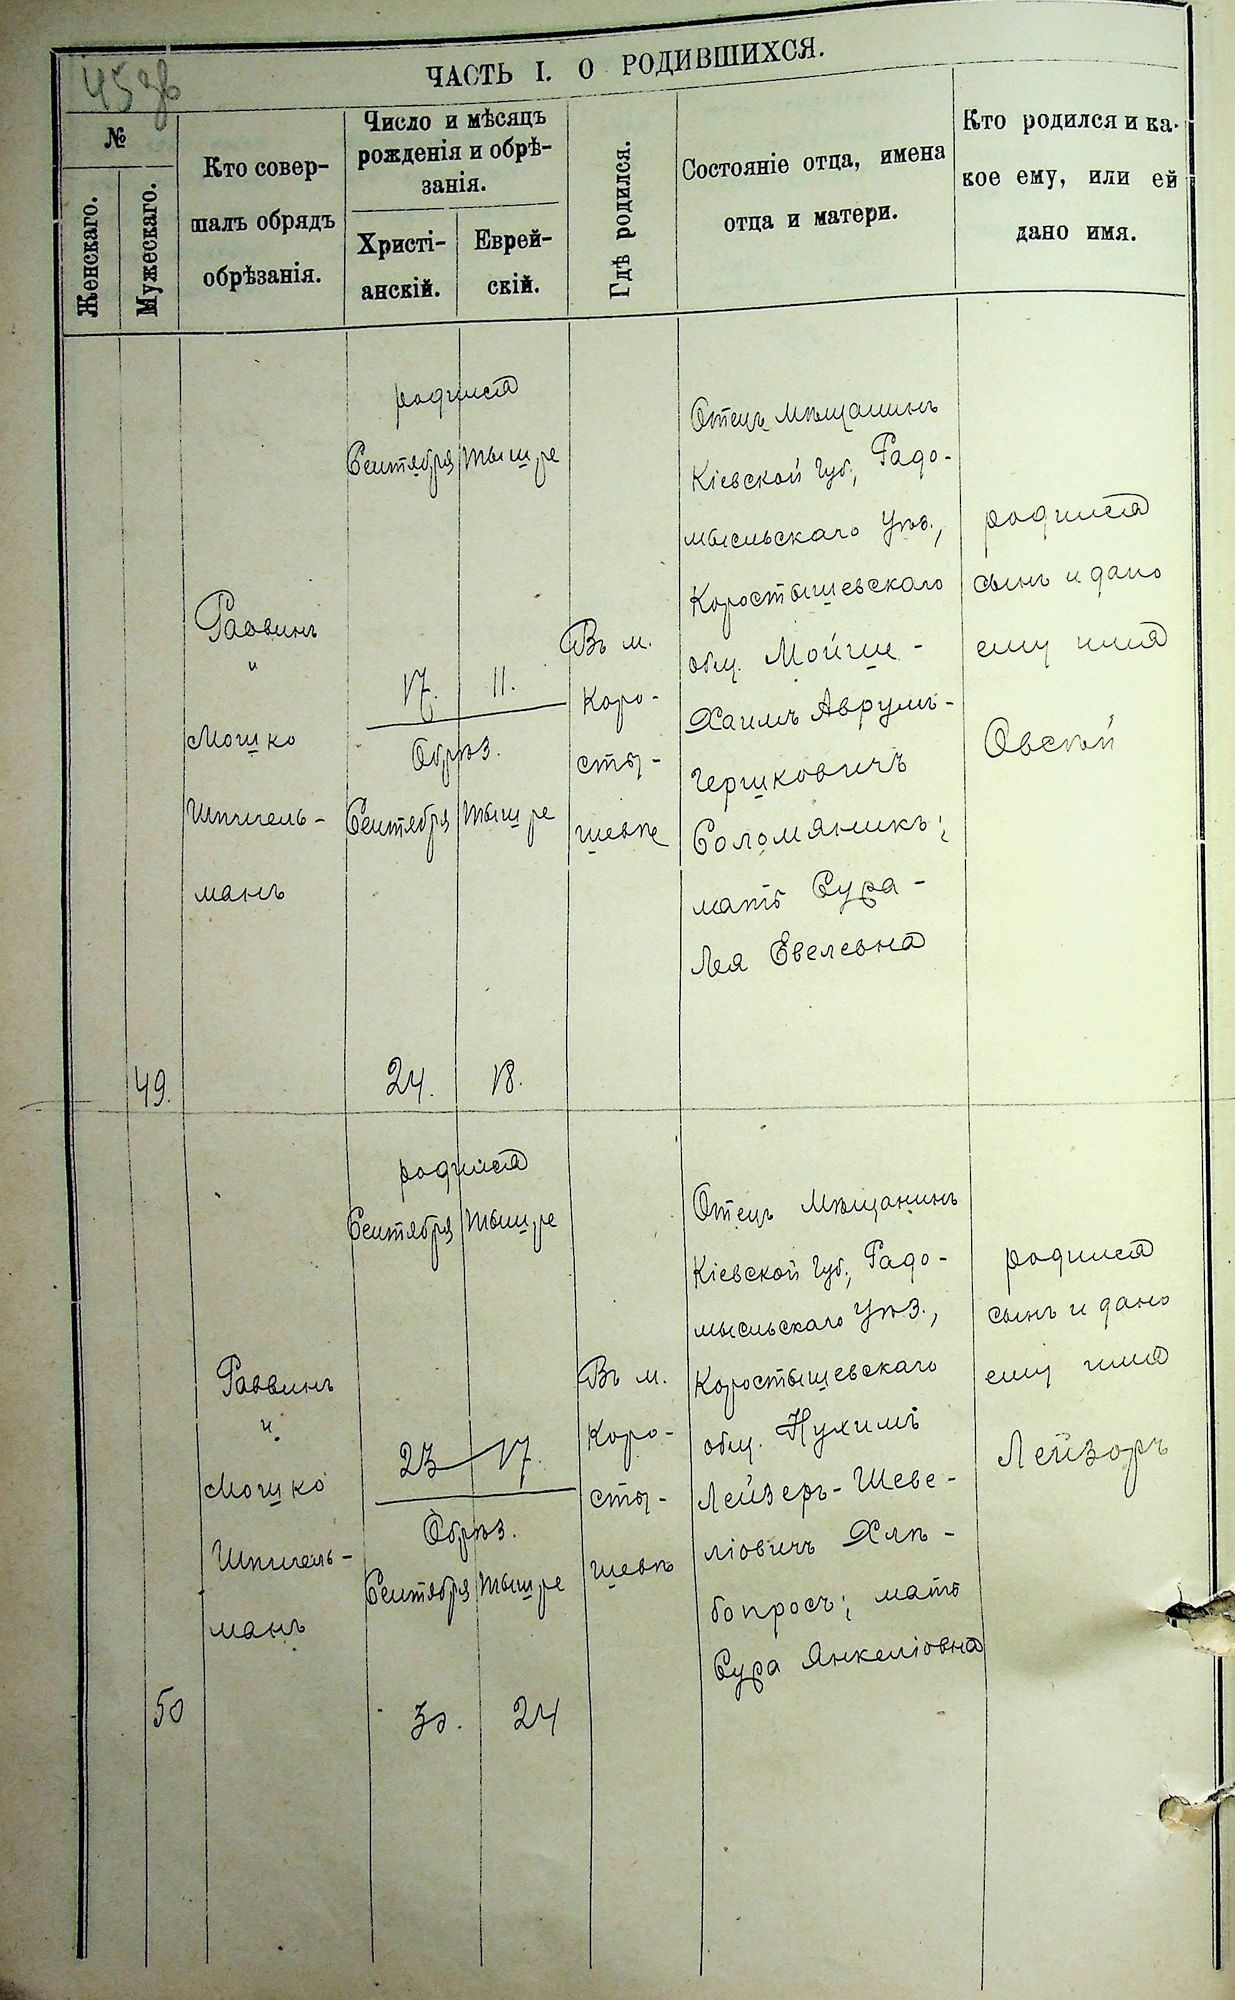 45 зв
ЧАСТЬ I. О РОДИВШИХСЯ.
№
Женскаго.
Мужескаго.
Кто совер-
шалъ обрядъ
обрѣзанія.
Число и мѣсяцъ
рожденія и обрѣ-
занія.
Христі-
анскій.
Еврей-
скій.
Гдѣ родился.
Состояніе отца, имена
отца и матери.
Кто родился и ка-
кое ему, или ей
дано имя.
49.
Раввинъ
и
Мошко
Шпигель-
манъ
родился
Сентября Тышре
17. 11.
Обрѣз.
Сентября Тышре
24. 18.
Въ м.
Коро-
сты-
шевѣ
Отецъ мѣщанинъ
Кіевской губ., Радо-
мысльскаго уѣз.,
Коростышевскаго
общ. Мойше-
Хаимъ Аврумъ-
Гершковичъ
Соломяникъ;
мать Сура-
Лея Евелевна
родился
сынъ и дано
ему имя
Овсѣй
50
Раввинъ
и
Мошко
Шпигель-
манъ
родился
Сентября Тышре
23 17.
Обрѣз.
Сентября Тышре
30. 24
Въ м.
Коро-
сты-
шевѣ
Отецъ мѣщанинъ
Кіевской губ., Радо-
мысльскаго уѣз.,
Коростышевскаго
общ. Нухимъ
Лейзеръ-Шеве-
ліовичъ Хлѣ-
бопросъ; мать
Сура Янкеліовна
родился
сынъ и дано
ему имя
Лейзоръ